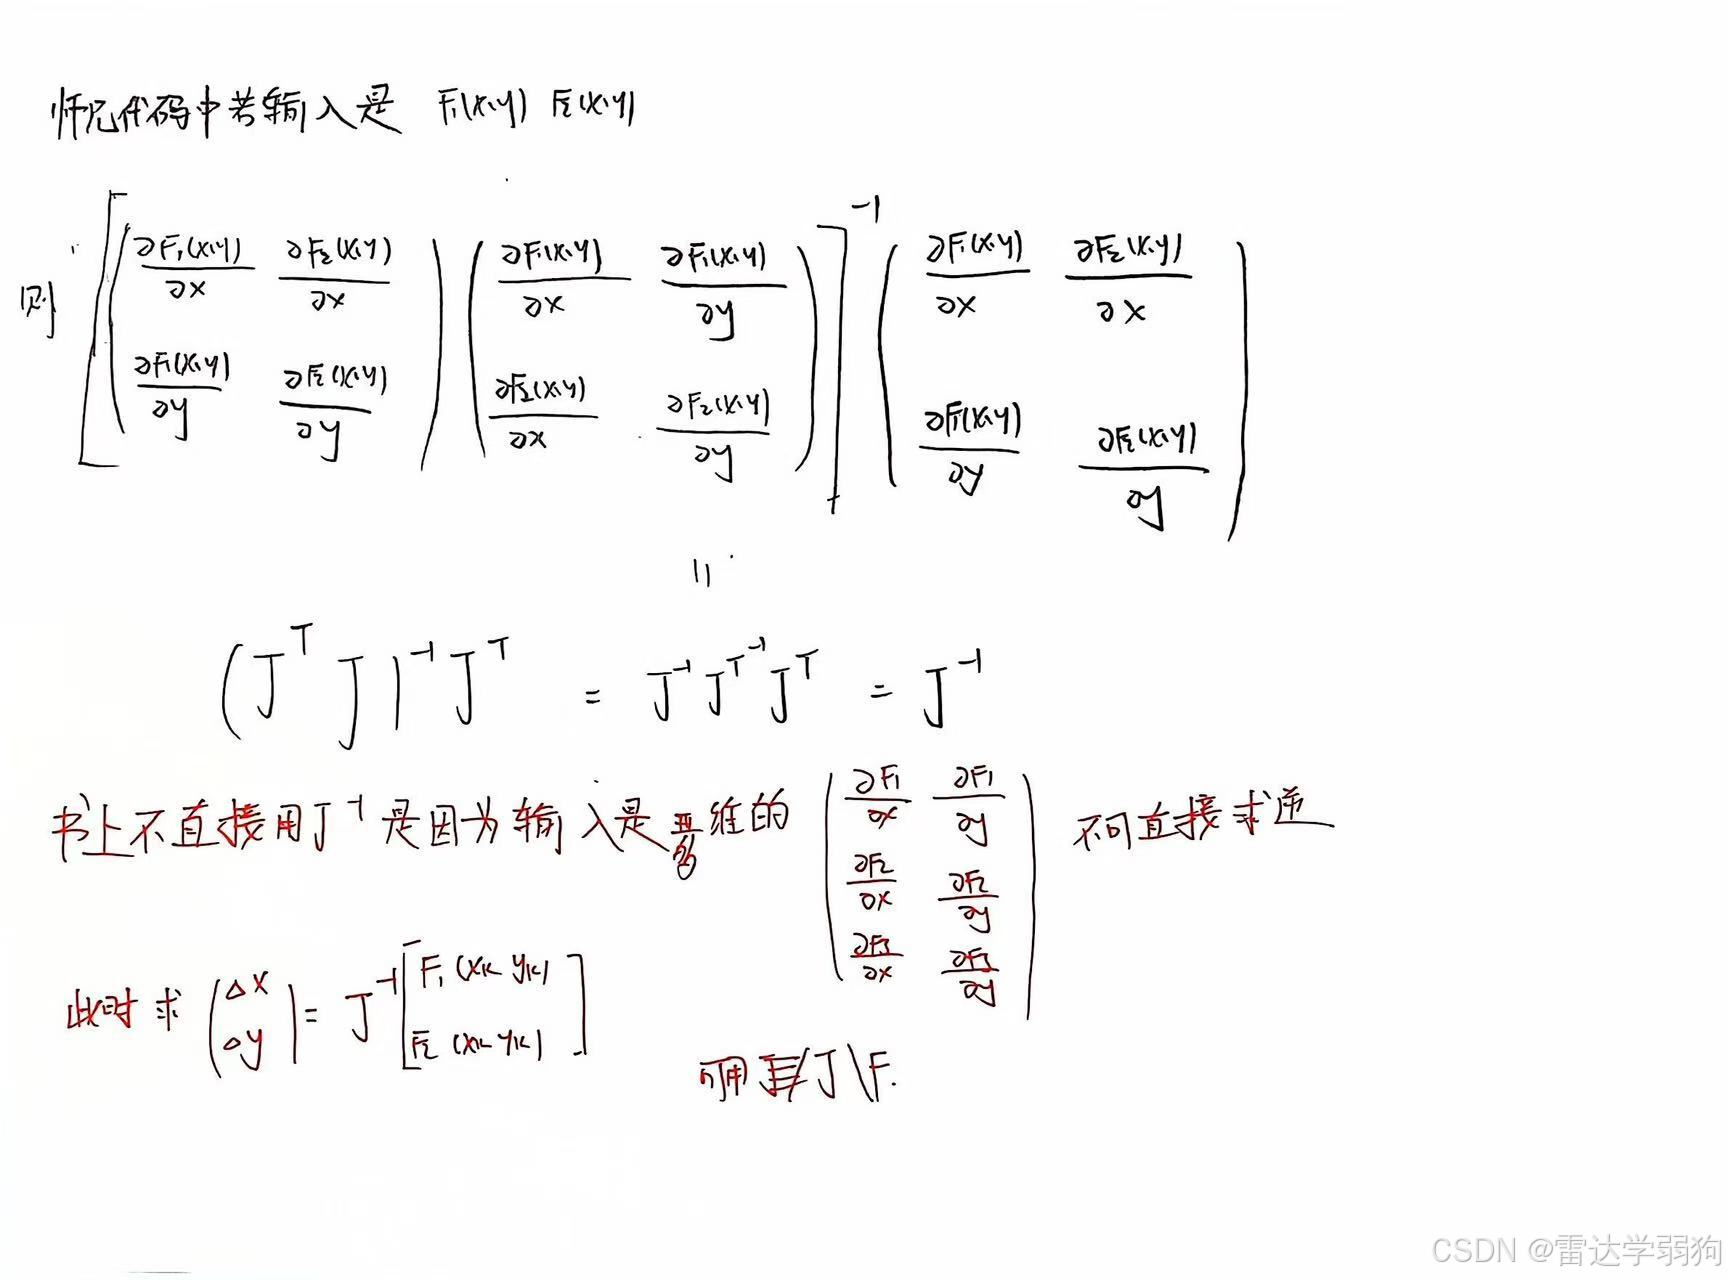 师兄代码中若输入是 F₁(x,y) F₂(x,y)
则 [ ( ∂F₁(x,y)/∂x ∂F₂(x,y)/∂x ; ∂F₁(x,y)/∂y ∂F₂(x,y)/∂y ) ( ∂F₁(x,y)/∂x ∂F₁(x,y)/∂y ; ∂F₂(x,y)/∂x ∂F₂(x,y)/∂y ) ]⁻¹ ( ∂F₁(x,y)/∂x ∂F₂(x,y)/∂x ; ∂F₁(x,y)/∂y ∂F₂(x,y)/∂y )
=
(JᵀJ)⁻¹Jᵀ = J⁻¹Jᵀ⁻¹Jᵀ = J⁻¹
书上不直接用J⁻¹是因为输入是多维的 ( ∂F₁/∂x ∂F₁/∂y ; ∂F₂/∂x ∂F₂/∂y ; ∂F₃/∂x ∂F₃/∂y ) 不可直接求逆
此时求 ( Δx ; Δy ) = J⁻¹ [ F₁(xₖ yₖ) ; F₂(xₖ yₖ) ]
可用 J\F.
CSDN @雷达学弱狗